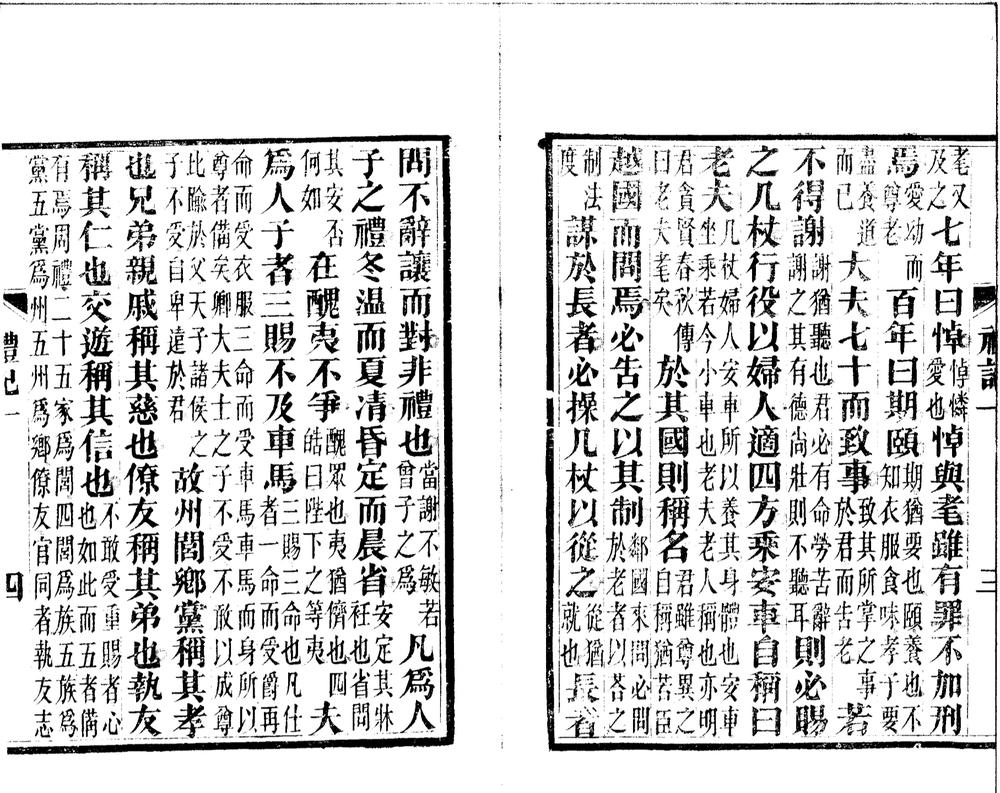 老又及之七年曰悼悼憐愛也悼與耄雖有罪不加刑
焉愛幼而尊老百年曰期頤期猶要也頤養也不知衣服食味孝子要
盡養道而已大夫七十而致事致其所掌之事於君而告老若
不得謝謝猶聽也君必有命勞苦辭謝之其有德尚壯則不聽耳則必賜
之几杖行役以婦人適四方乘安車自稱曰
老夫几杖婦人安車所以養其身體也安車坐乘若今小車也老夫老人稱也亦明
君貪賢春秋傳曰老夫耄矣於其國則稱名君雖尊異之自稱猶若臣
越國而問焉必告之以其制鄰國來問必問於老者以荅之
制法度謀於長者必操几杖以從之從猶就也長者
禮記一
三
問不辭讓而對非禮也當謝不敏若曾子之為凡爲人
子之禮冬温而夏凊昏定而晨省安定其牀衽也省問
其安否何如在醜夷不爭醜眾也夷猶儕也四皓曰陛下之等夷夫
爲人子者三賜不及車馬三賜三命也凡仕者一命而受爵再
命而受衣服三命而受車馬車馬而身所以尊者備矣卿大夫士之子不受不敢以成尊
比踰於父天子諸侯之子不受自卑遠於君故州閭鄉黨稱其孝
也兄弟親戚稱其慈也僚友稱其弟也執友
稱其仁也交遊稱其信也不敢受重賜者心也如此而五者備
有焉周禮二十五家爲閭四閭爲族五族爲黨五黨爲州五州爲鄉僚友官同者執友志
禮記一
四